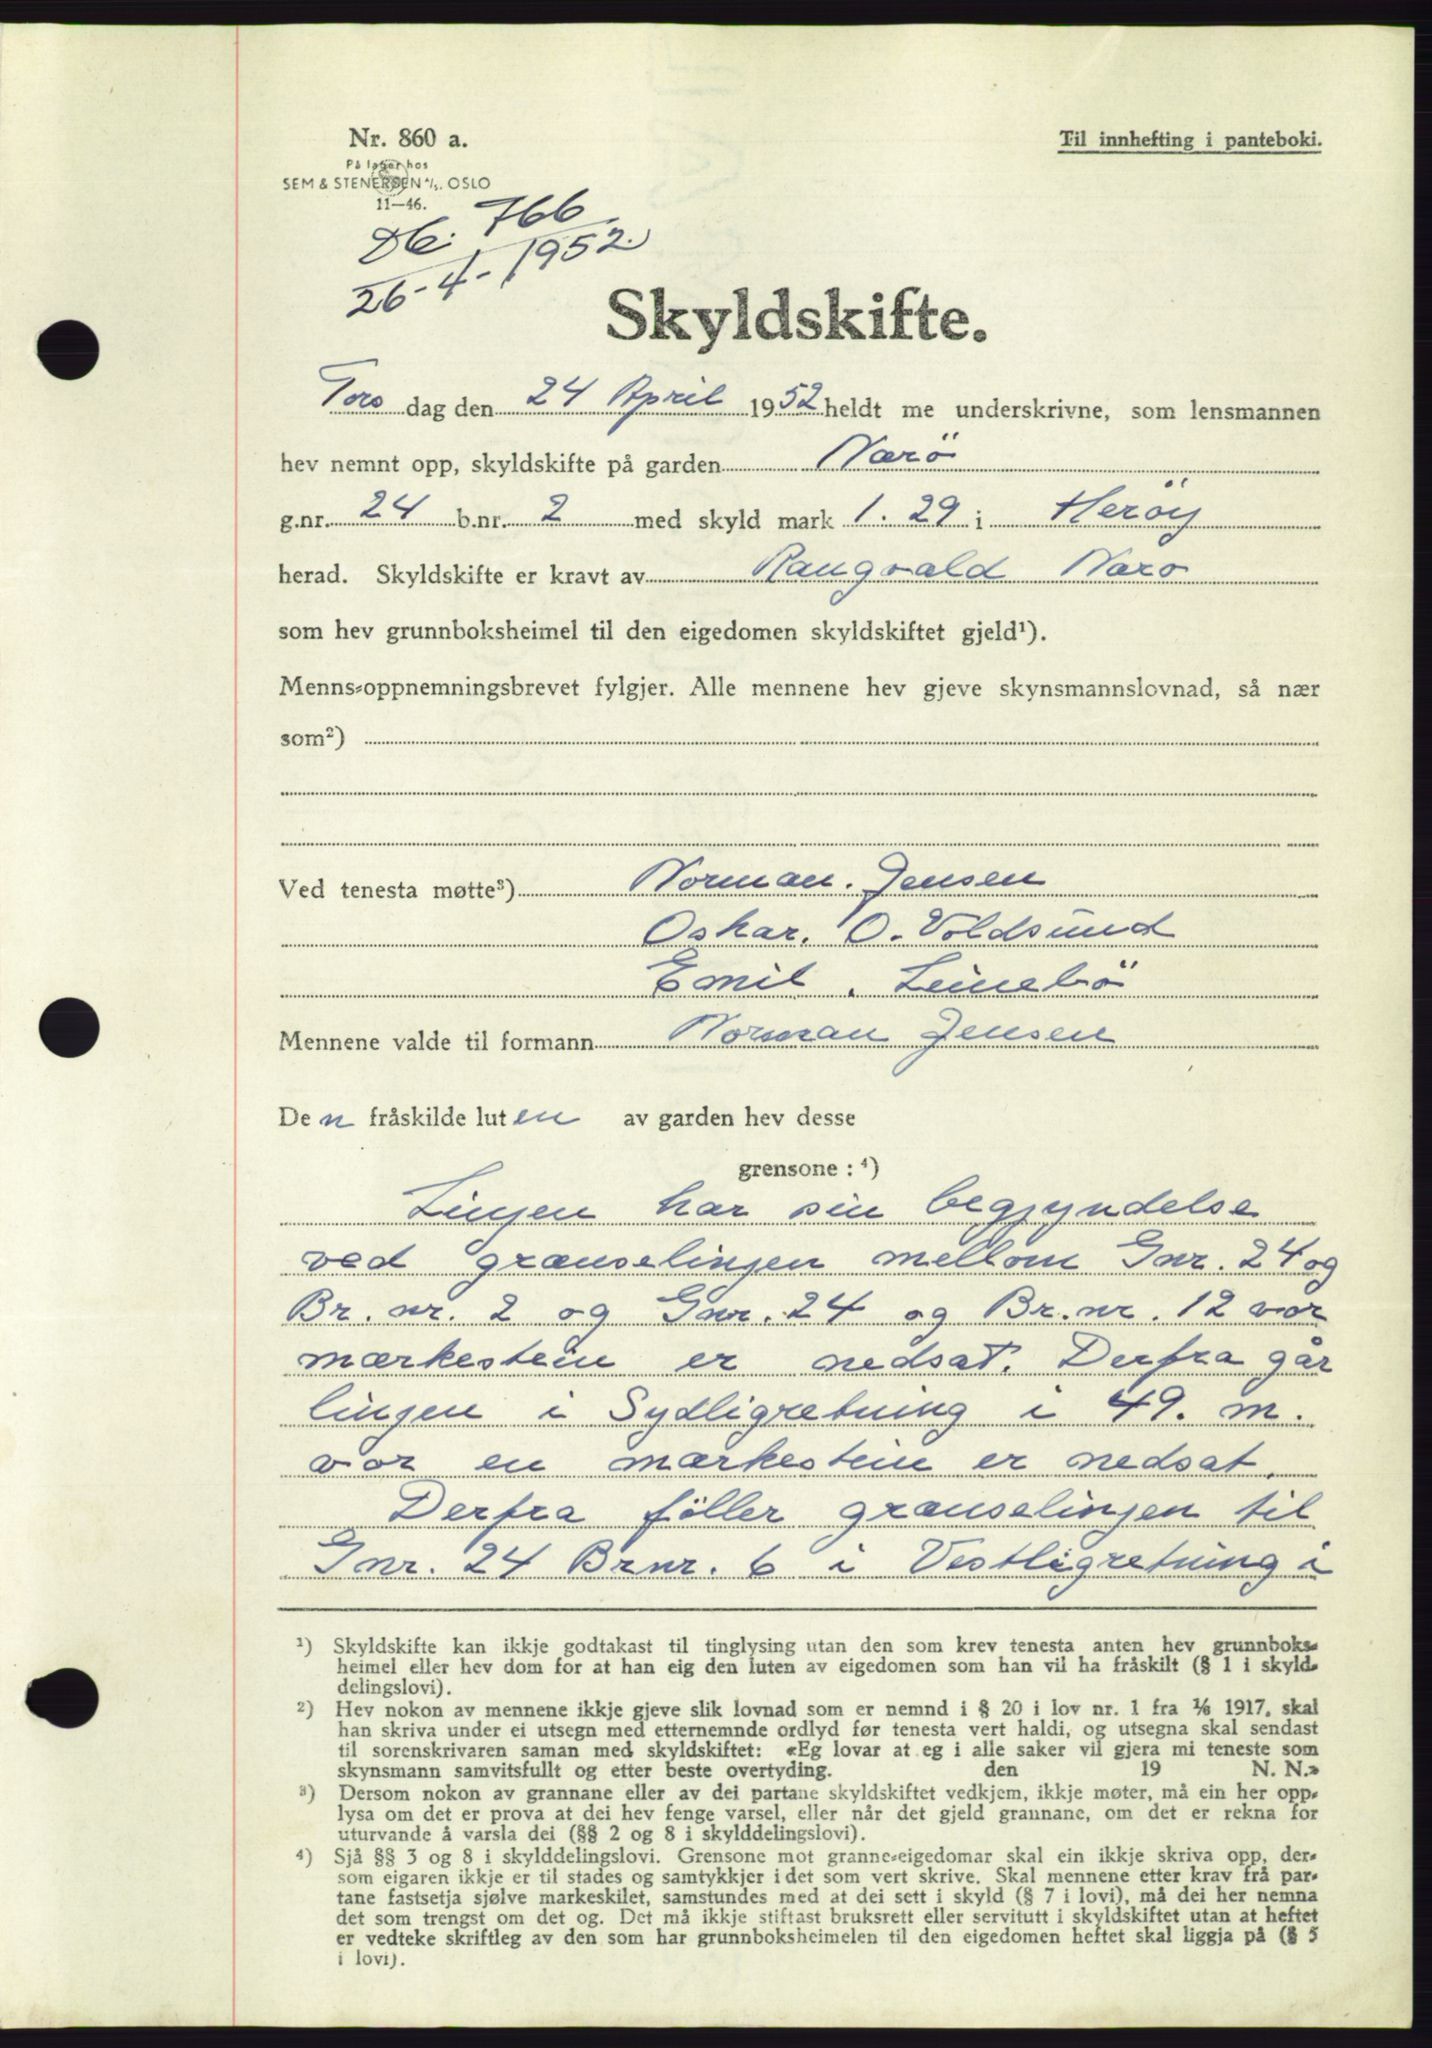 Nr. 860 a.
Til innhefting i panteboki.
På lager hos
SEM & STENERSEN A/S. OSLO
11—46.
Db. 766
26-4-1952.
Skyldskifte.
Tors dag den 24 April 1952 heldt me underskrivne, som lensmannen
hev nemnt opp, skyldskifte på garden Nærö
g.nr. 24 b.nr. 2 med skyld mark 1.29 i Heröy
herad. Skyldskifte er kravt av Rangvald Næro
som hev grunnboksheimel til den eigedomen skyldskiftet gjeld¹).
Menns-oppnemningsbrevet fylgjer. Alle mennene hev gjeve skynsmannslovnad, så nær
som²)
Ved tenesta møtte³) Norman. Jensen
Oskar. O. Voldsund
Emil. Leinebö
Mennene valde til formann Norman Jensen
De n fråskilde lut en av garden hev desse
grensone : ⁴)
Linjen har sin begjyndelse
ved grænselinjen mellom Gnr. 24 og
Br. nr. 2 og Gnr. 24 og Br. nr. 12 vor
mærkestein er nedsat. Derfra går
linjen i Sydligretning i 49. m.
vor en mærkestein er nedsat.
Derfra föller grænselinjen til
Gnr. 24 Br nr. 6 i Vestligretning i
¹) Skyldskifte kan ikkje godtakast til tinglysing utan den som krev tenesta anten hev grunnboks-
heimel eller hev dom for at han eig den luten av eigedomen som han vil ha fråskilt (§ 1 i skyld-
delingslovi).
²) Hev nokon av mennene ikkje gjeve slik lovnad som er nemnd i § 20 i lov nr. 1 fra ⅙ 1917, skal
han skriva under ei utsegn med etternemnde ordlyd før tenesta vert haldi, og utsegna skal sendast
til sorenskrivaren saman med skyldskiftet: «Eg lovar at eg i alle saker vil gjera mi teneste som
skynsmann samvitsfullt og etter beste overtyding. den 19 N. N.»
³) Dersom nokon av grannane eller av dei partane skyldskiftet vedkjem, ikkje møter, må ein her opp-
lysa om det er prova at dei hev fenge varsel, eller når det gjeld grannane, om det er rekna for
uturvande å varsla dei (§§ 2 og 8 i skylddelingslovi).
⁴) Sjå §§ 3 og 8 i skylddelingslovi. Grensone mot granne-eigedomar skal ein ikkje skriva opp, der-
som eigaren ikkje er til stades og samtykkjer i det som vert skrive. Skal mennene etter krav frå par-
tane fastsetja sjølve markeskilet, samstundes med at dei sett i skyld (§ 7 i lovi), må dei her nemna
det som trengst om det og. Det må ikkje stiftast bruksrett eller servitutt i skyldskiftet utan at heftet
er vedteke skriftleg av den som har grunnboksheimelen til den eigedomen heftet skal liggja på (§ 5
i lovi).